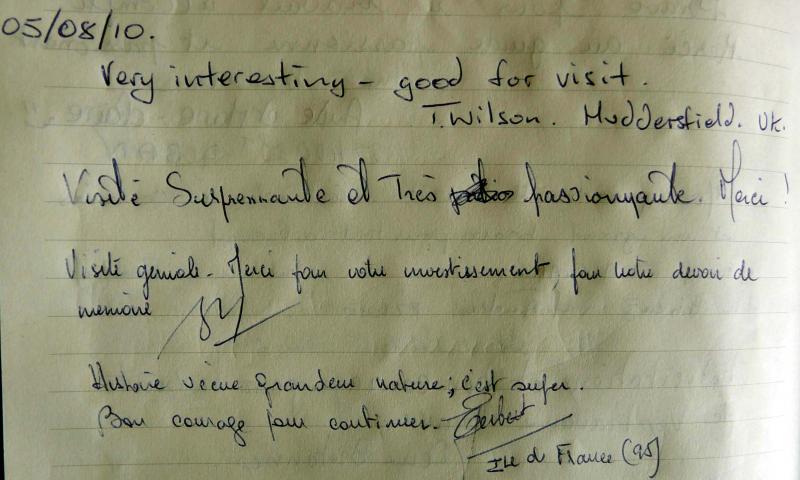 05/08/10.
Very interesting - good for visit.
T. Wilson. Huddersfield. UK.
Visité Surprennante et Très passionyante. Merci !
Visité geniale. Merci pour votre investissement, pour notre devoir de
memoire
Histoire vecue grandeur nature; c'est super.
Bon courage pour continuer.
Ile de France (95)